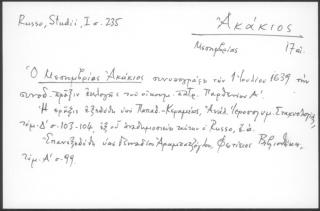 Russo, Studii, I σ. 235
Ἀκάκιος
Μεσημβρίας 17 αἰ.
Ὁ Μεσημβρίας Ἀκάκιος συνυπογράφει τὴν 1 Ἰουλίου 1639 τὴν
συνοδ. πρᾶξιν ἐκλογῆς τοῦ οἰκουμ. πατρ. Παρθενίου Α΄.
Ἡ πρᾶξις ἐξεδόθη ὑπὸ Παπαδ.-Κεραμέως, Ἀνάλ. Ἱεροσολυμ. Σταχυολογίας,
τόμ. Δ΄ σ. 103-104, ἐξ οὗ ἀναδημοσιεύει ὁ Russo, ἔ.ἀ.
Ἐπανεξεδόθη ὑπὸ Γενναδίου Ἀραμπατζόγλου, Φωτίειος Βιβλιοθήκη,
τόμ. Α΄ σ. 99.